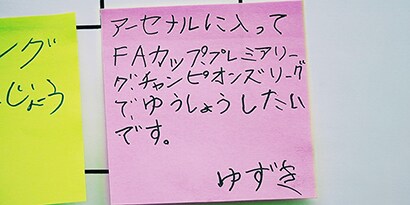 ング
じょう
アーセナルに入って
FAカップ、プレミアリー
グ、チャンピオンズリーグ
で、ゆうしょうしたい
です。
ゆずき